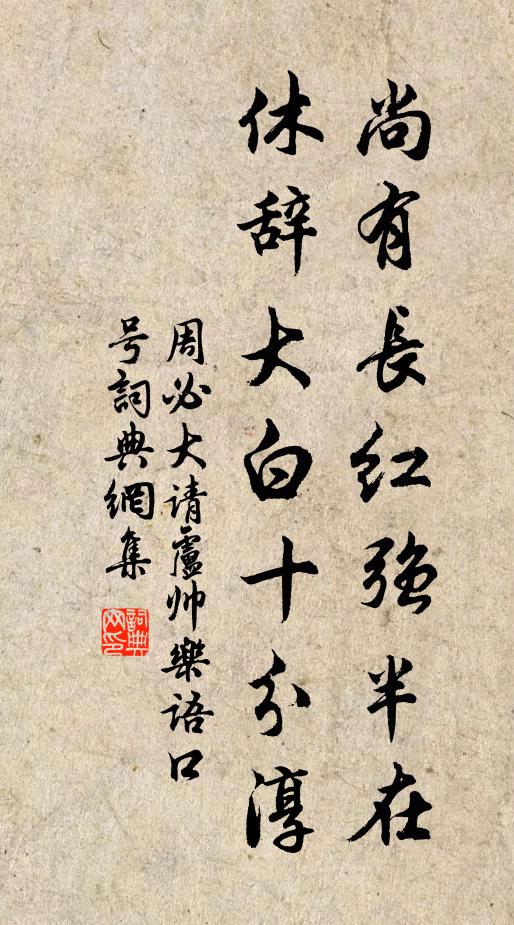 尚有長红強半在
休辞大白十分淳
周必大请盧帅樂语口
号詞典網集
詞典网印